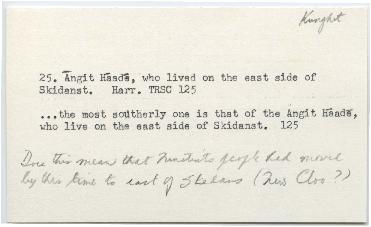 Kunghit
25. Angit Haadē, who lived on the east side of
Skidanst.   Harr. TRSC 125
...the most southerly one is that of the Angit Haadē,
who live on the east side of Skidanst.  125
Does this mean that Ninstints people had moved
by this time to east of Skedans (New Cloo?)